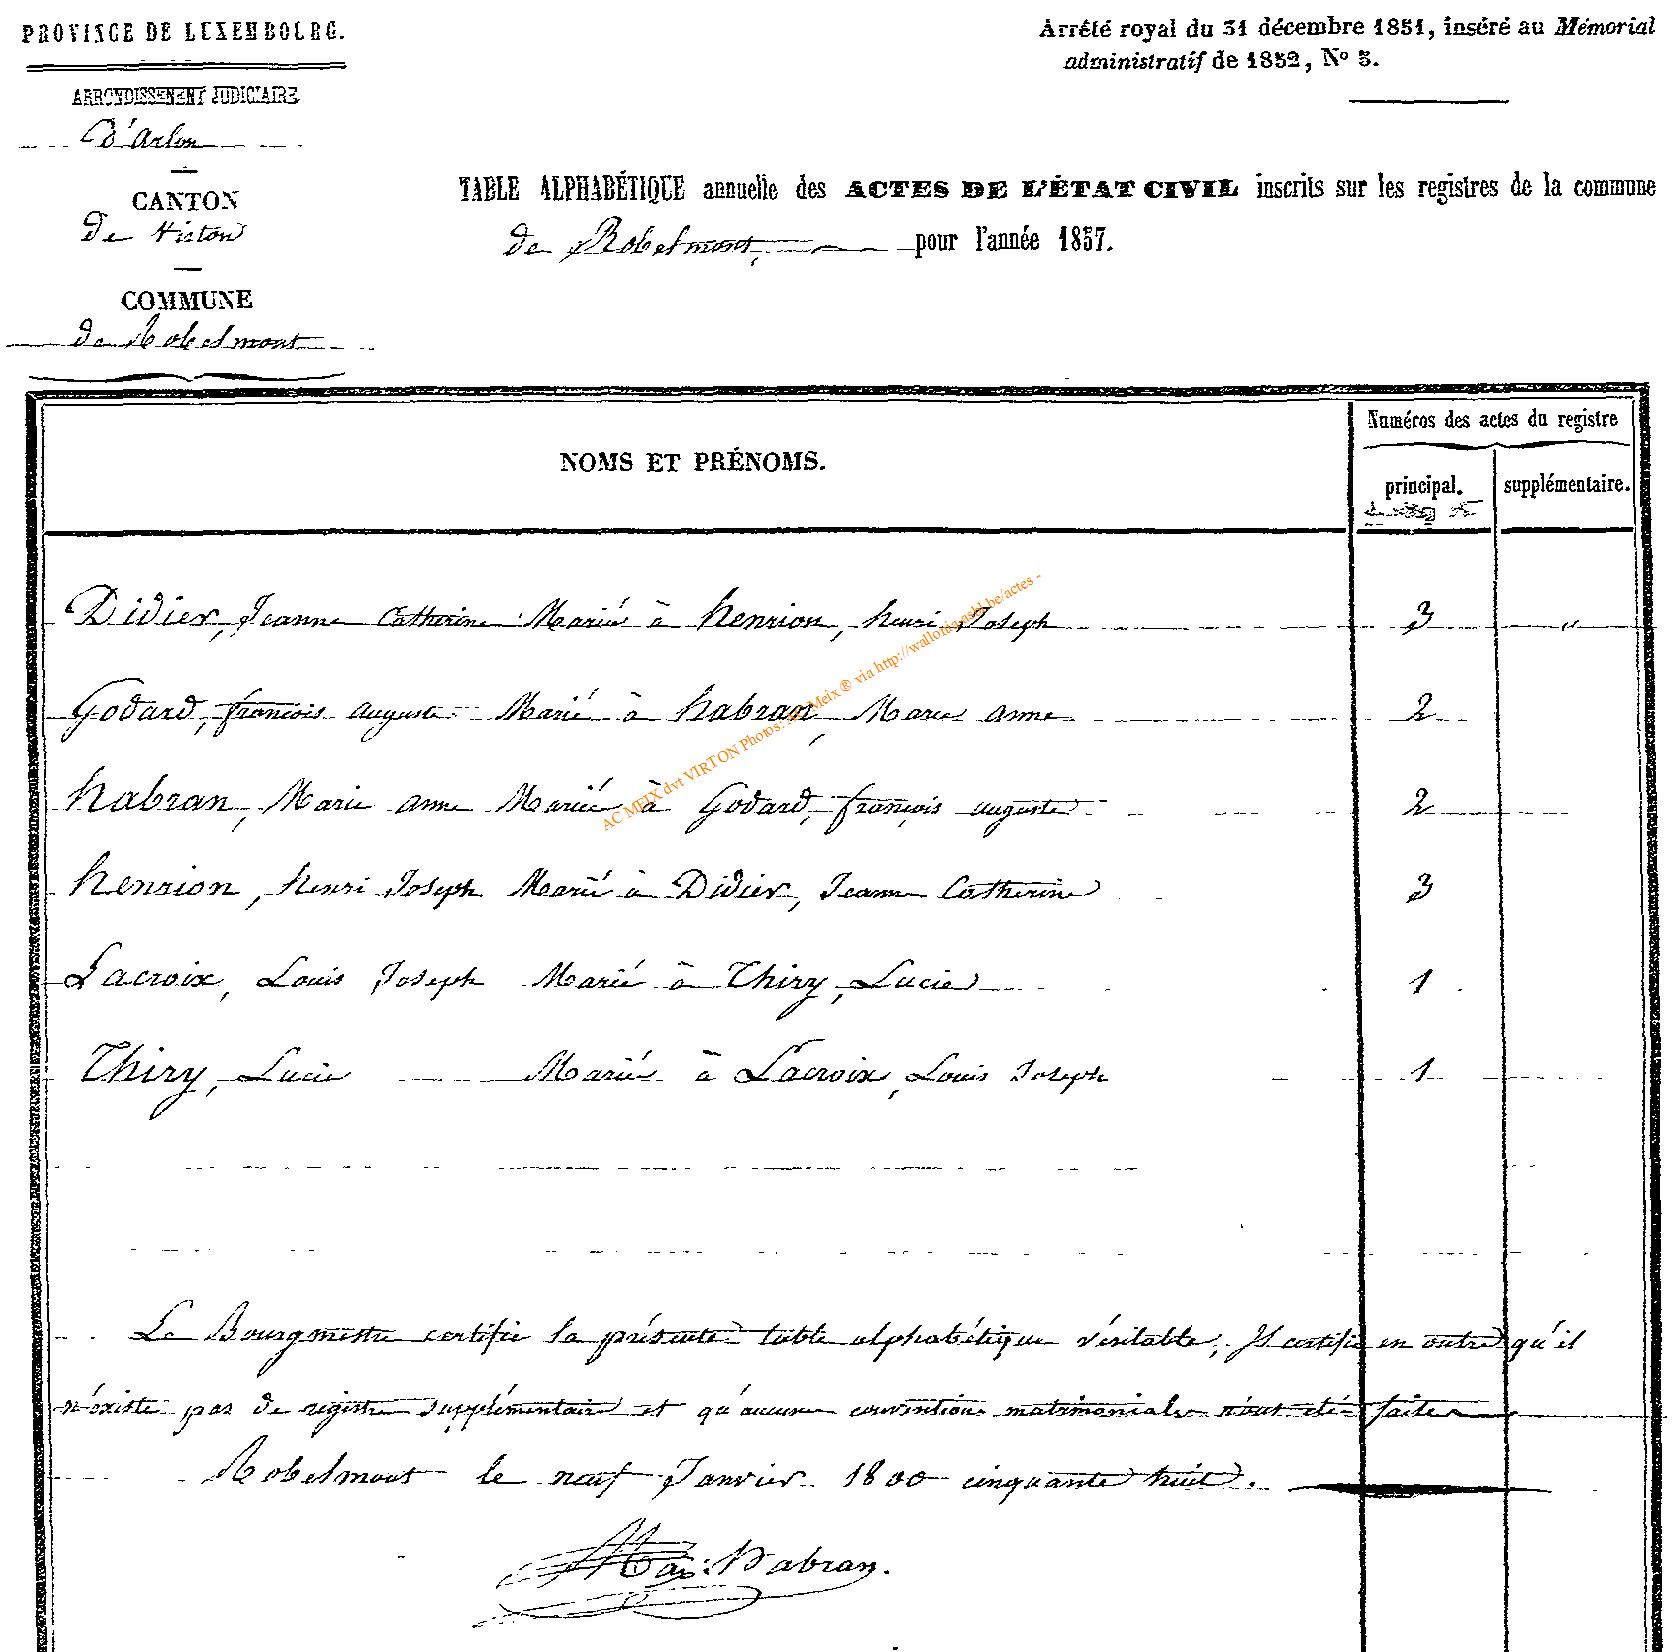 PROVINCE DE LUXEMBOURG.
ARRONDISSEMENT JUDICIAIRE
D'Arlon
CANTON
De Virton
COMMUNE
de Robelmont
Arrêté royal du 31 décembre 1851, inséré au Mémorial
administratif de 1852, No 3.
TABLE ALPHABÉTIQUE annuelle des ACTES DE L'ÉTAT CIVIL inscrits sur les registres de la commune
de Robelmont, pour l'année 1857.
NOMS ET PRÉNOMS.
Numéros des actes du registre
principal. supplémentaire.
Didier, Jeanne Catherine Mariée à henrion, henri Joseph 3 "
Godard, françois auguste Marié à habran, Marie anne 2
habran, Marie anne Mariée à Godard, françois auguste 2
henrion, henri Joseph Marié à Didier, Jeanne Catherine 3
Lacroix, Louis Joseph Marié à Thiry, Lucie 1
Thiry, Lucie Mariée à Lacroix, Louis Joseph 1
Le Bourgmestre certifie la présente table alphabétique véritable, Il certifie en outre qu'il
n'existe pas de registre supplémentaire et qu'aucune convention matrimoniale n'ont été faites
Robelmont le neuf Janvier 1800 cinquante huit.
Habran.
AC MEIX dvt VIRTON Photos: Meix ® via http://wallonia.asbl.be/actes -